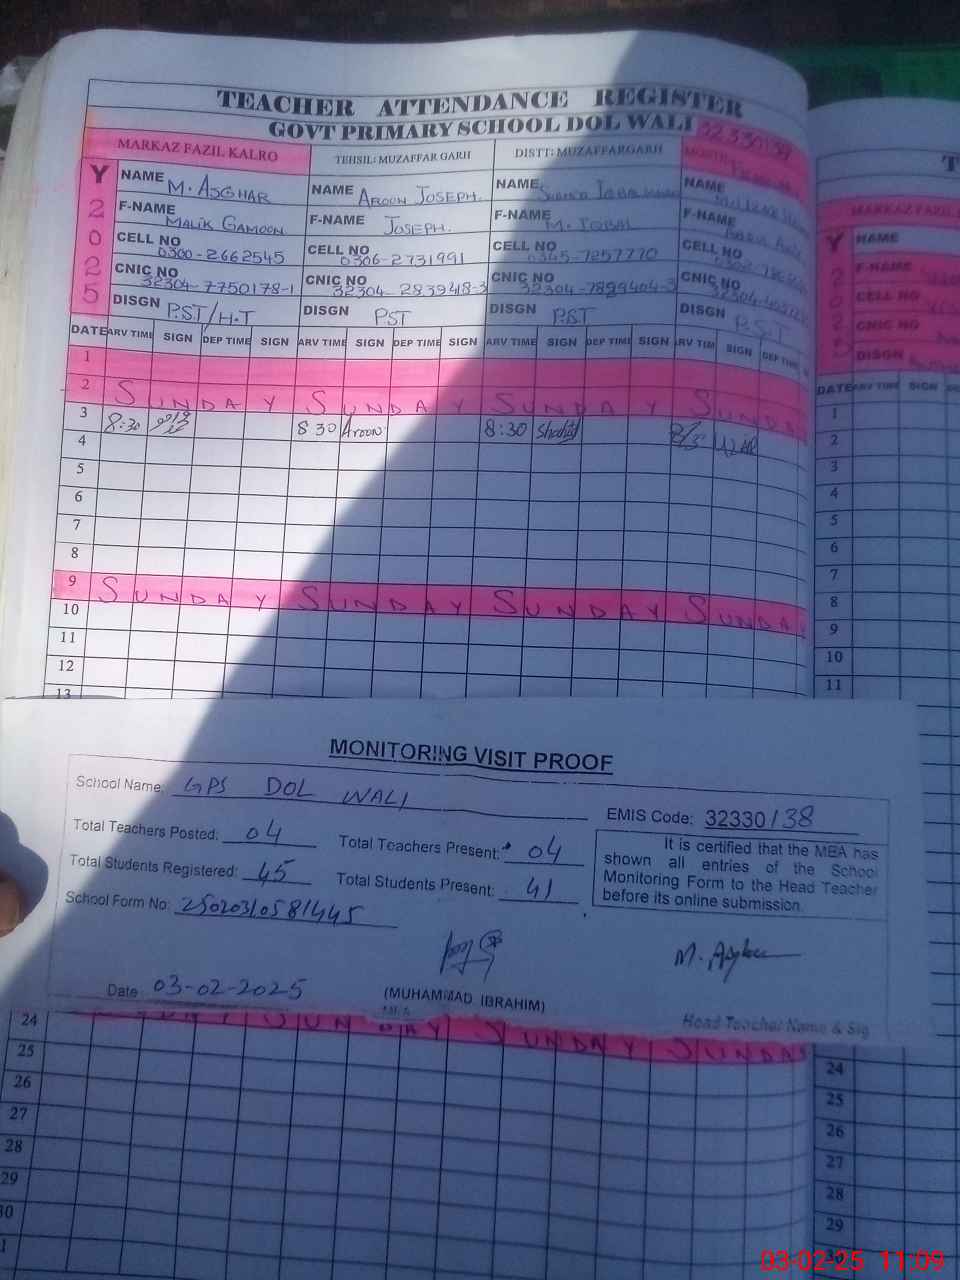 TEACHER ATTENDANCE REGISTER
GOVT PRIMARY SCHOOL DOL WALI 32330138
MARKAZ FAZIL KALRO TEHSIL: MUZAFFAR GARH DISTT: MUZAFFARGARH MONTH
Y 2 0 2 5
NAME M. ASGHAR NAME AROON JOSEPH. NAME NAME
F-NAME MALIK GAMOON F-NAME JOSEPH. F-NAME M. IQBAL F-NAME
CELL NO 0300-2662545 CELL NO 0306-2731991 CELL NO 0345-7257770 CELL NO
CNIC NO 32304-7750178-1 CNIC NO 32304-283948-3 CNIC NO 32304-7899404-3 CNIC NO
DISGN P.ST/H.T DISGN PST DISGN P.S.T DISGN P.S.T
DATE ARV TIME SIGN DEP TIME SIGN ARV TIME SIGN DEP TIME SIGN ARV TIME SIGN DEP TIME SIGN ARV TIM SIGN DEP TIME
1
2 SUNDAY SUNDAY SUNDAY SUNDA
3 8:30 8 30 Aroon 8:30 Shahid
4
5
6
7
8
9 SUNDAY SUNDAY SUNDAY SUNDAY
10
11
12
13
MONITORING VISIT PROOF
School Name: GPS DOL WALI
EMIS Code: 32330138
Total Teachers Posted: 04 Total Teachers Present: 04
Total Students Registered: 45 Total Students Present: 41
School Form No: 25020310581445
It is certified that the MEA has
shown all entries of the School
Monitoring Form to the Head Teacher
before its online submission.
M. Asghar
Date 03-02-2025 (MUHAMMAD IBRAHIM)
MEA
Head Teacher Name & Sig
DAY SUNDAY SUNDAY SUNDAY
24
25
26
27
28
29
30
1
T
MARKAZ FAZIL
Y
NAME
F-NAME
CELL NO
CNIC NO
DISGN
DATE ARV TIME SIGN
1
2
3
4
5
6
7
8
9
10
11
24
25
26
27
28
29
03-02-25 11:09